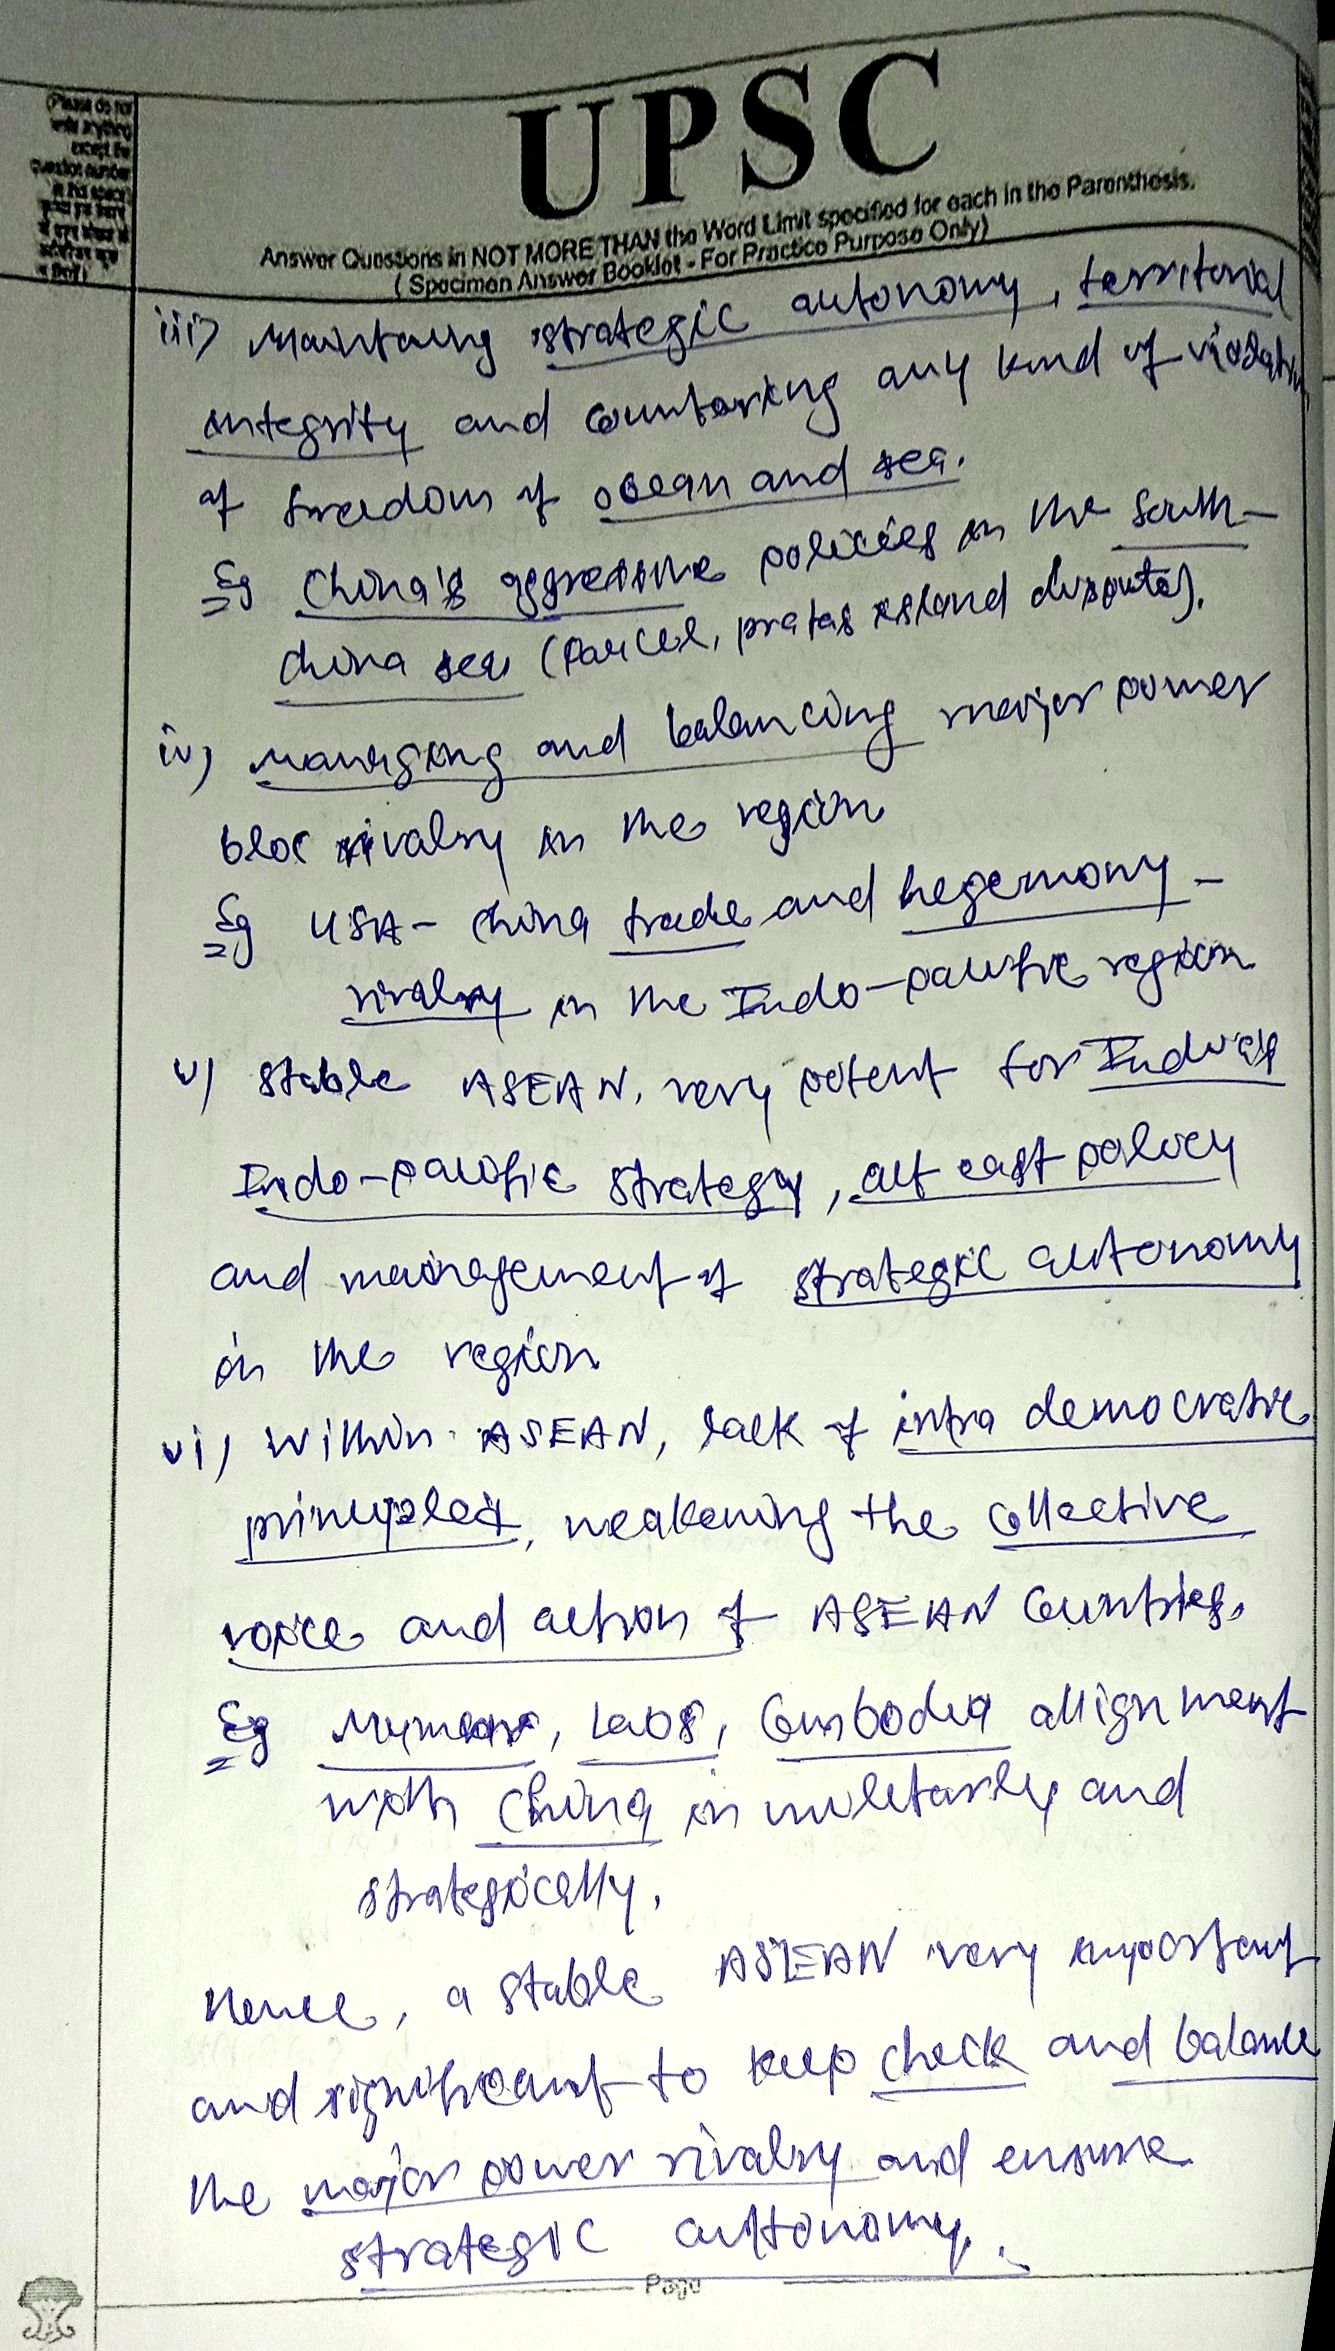 UPSC
Answer Questions in NOT MORE THAN the Word Limit specified for each in the Parenthesis.
( Specimen Answer Booklet - For Practice Purpose Only)
(Please do not
write anything
except the
question number
in this space)
iii) Maintaing strategic autonomy, territorial
integrity and countering any kind of violation
of freedom of ocean and sea.
Eg China's aggressive policies in the South-
China sea (Parcel, pratas island disputes).
iv) managing and balancing major power
bloc rivalry in the region
Eg USA- China trade and hegemony-
rivalry in the Indo-pacific region
v) stable ASEAN, very potent for India's
Indo-pacific strategy, act east policy
and management of strategic autonomy
in the region
vi) Within ASEAN, lack of intra democratic
principles, weakening the collective
voice and action of ASEAN Countries.
Eg Mymar, Laos, Combodia allignment
with China in miletarly and
strategically.
Hence, a stable ASEAN very important
and significant to keep check and balance
the major power rivalry and ensure
strategic autonomy.
Page